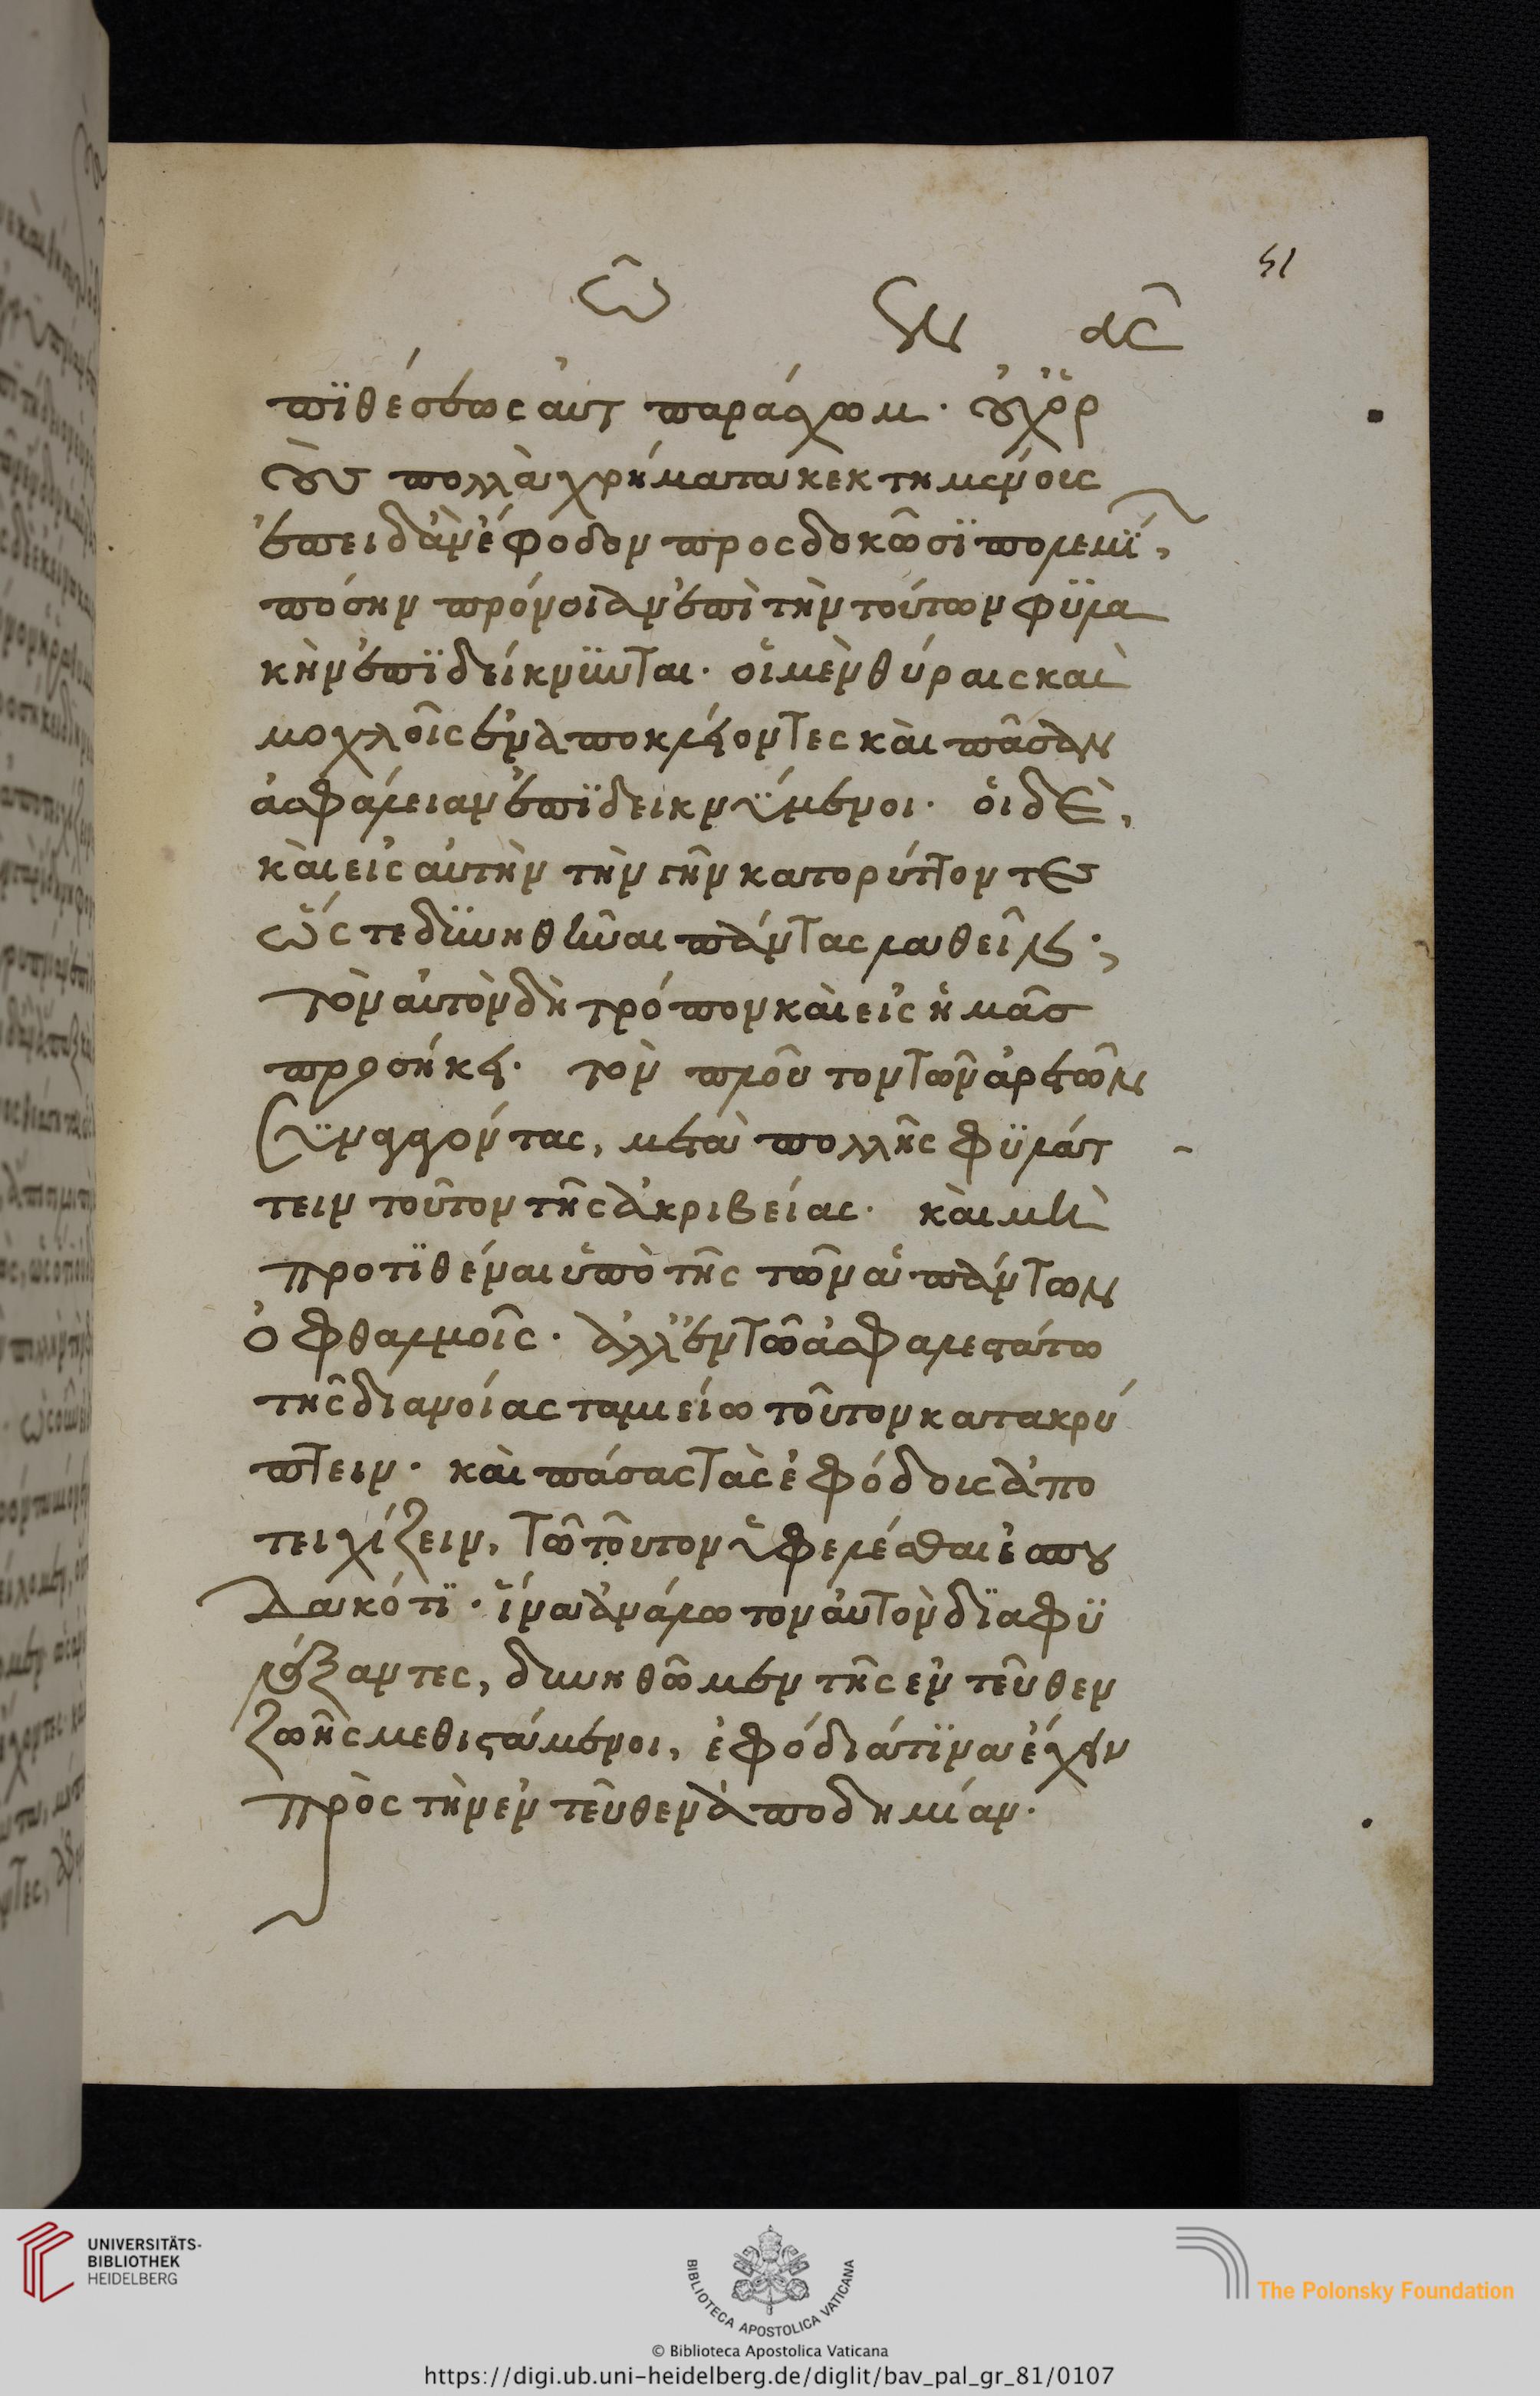 51
πϊθέσεως αὐτ παράσχωμ. οὐχ ὁρ
οὺσ πολλὰ χρήματα κεκτημένοις
ἐπειδὰν ἔφοδον προσδοκῶσϊ πολεμΐ,
πόσην πρόνοιαν ἐπὶ τὴν τούτων φϋλα
κὴν ἐπϊδείκνϋνται. οἱ μὲν θύραις καὶ
μοχλοῖς ἐναποκλείοντες καὶ πᾶσαν
ἀσφάλειαν ἐπϊδεικνϋμενοι. οἱ δὲ,
καὶ εἰς αὐτὴν τὴν γῆν κατορύττοντεσ
ὥς τε δϋνηθῆναι πάντας λαθεῖν·,
τὸν αὐτὸν δὴ τρόπον καὶ εἰς ἡμᾶσ
προσήκει. τὸν πλοῦτον τῶν ἀρετῶν
συνάγοντας, μετὰ πολλῆς φϋλάτ
τειν τοῦτον τῆς ἀκριβείας. καὶ μὴ
προτϊθέναι ὑπὸ τῆς τῶν ἁπάντων
ὀφθαλμοῖς. ἀλλ' ἐν τῶ ἀσφαλεστάτω
τῆς διανοίας ταμιείω τοῦτον κατακρύ
πτειν. καὶ πάσας τὰς ἐφόδοις ἀπο
τειχίζειν, τῶ τοῦτον ὑφελέσθαι ἐσπου
δακότϊ. ἵνα ἀνάλω τον αὐτὸν δϊαφϋ
λάξαντες, δυνηθῶμεν τῆς ἐν τεῦθεν
ζωῆς μεθιστάμενοι, ἐφόδιά τϊνα ἔχειν
πρὸς τὴν ἐν τεῦθεν ἀποδημίαν.
UNIVERSITÄTS-
BIBLIOTHEK
HEIDELBERG
BIBLIOTECA APOSTOLICA VATICANA
The Polonsky Foundation
© Biblioteca Apostolica Vaticana
https://digi.ub.uni-heidelberg.de/diglit/bav_pal_gr_81/0107